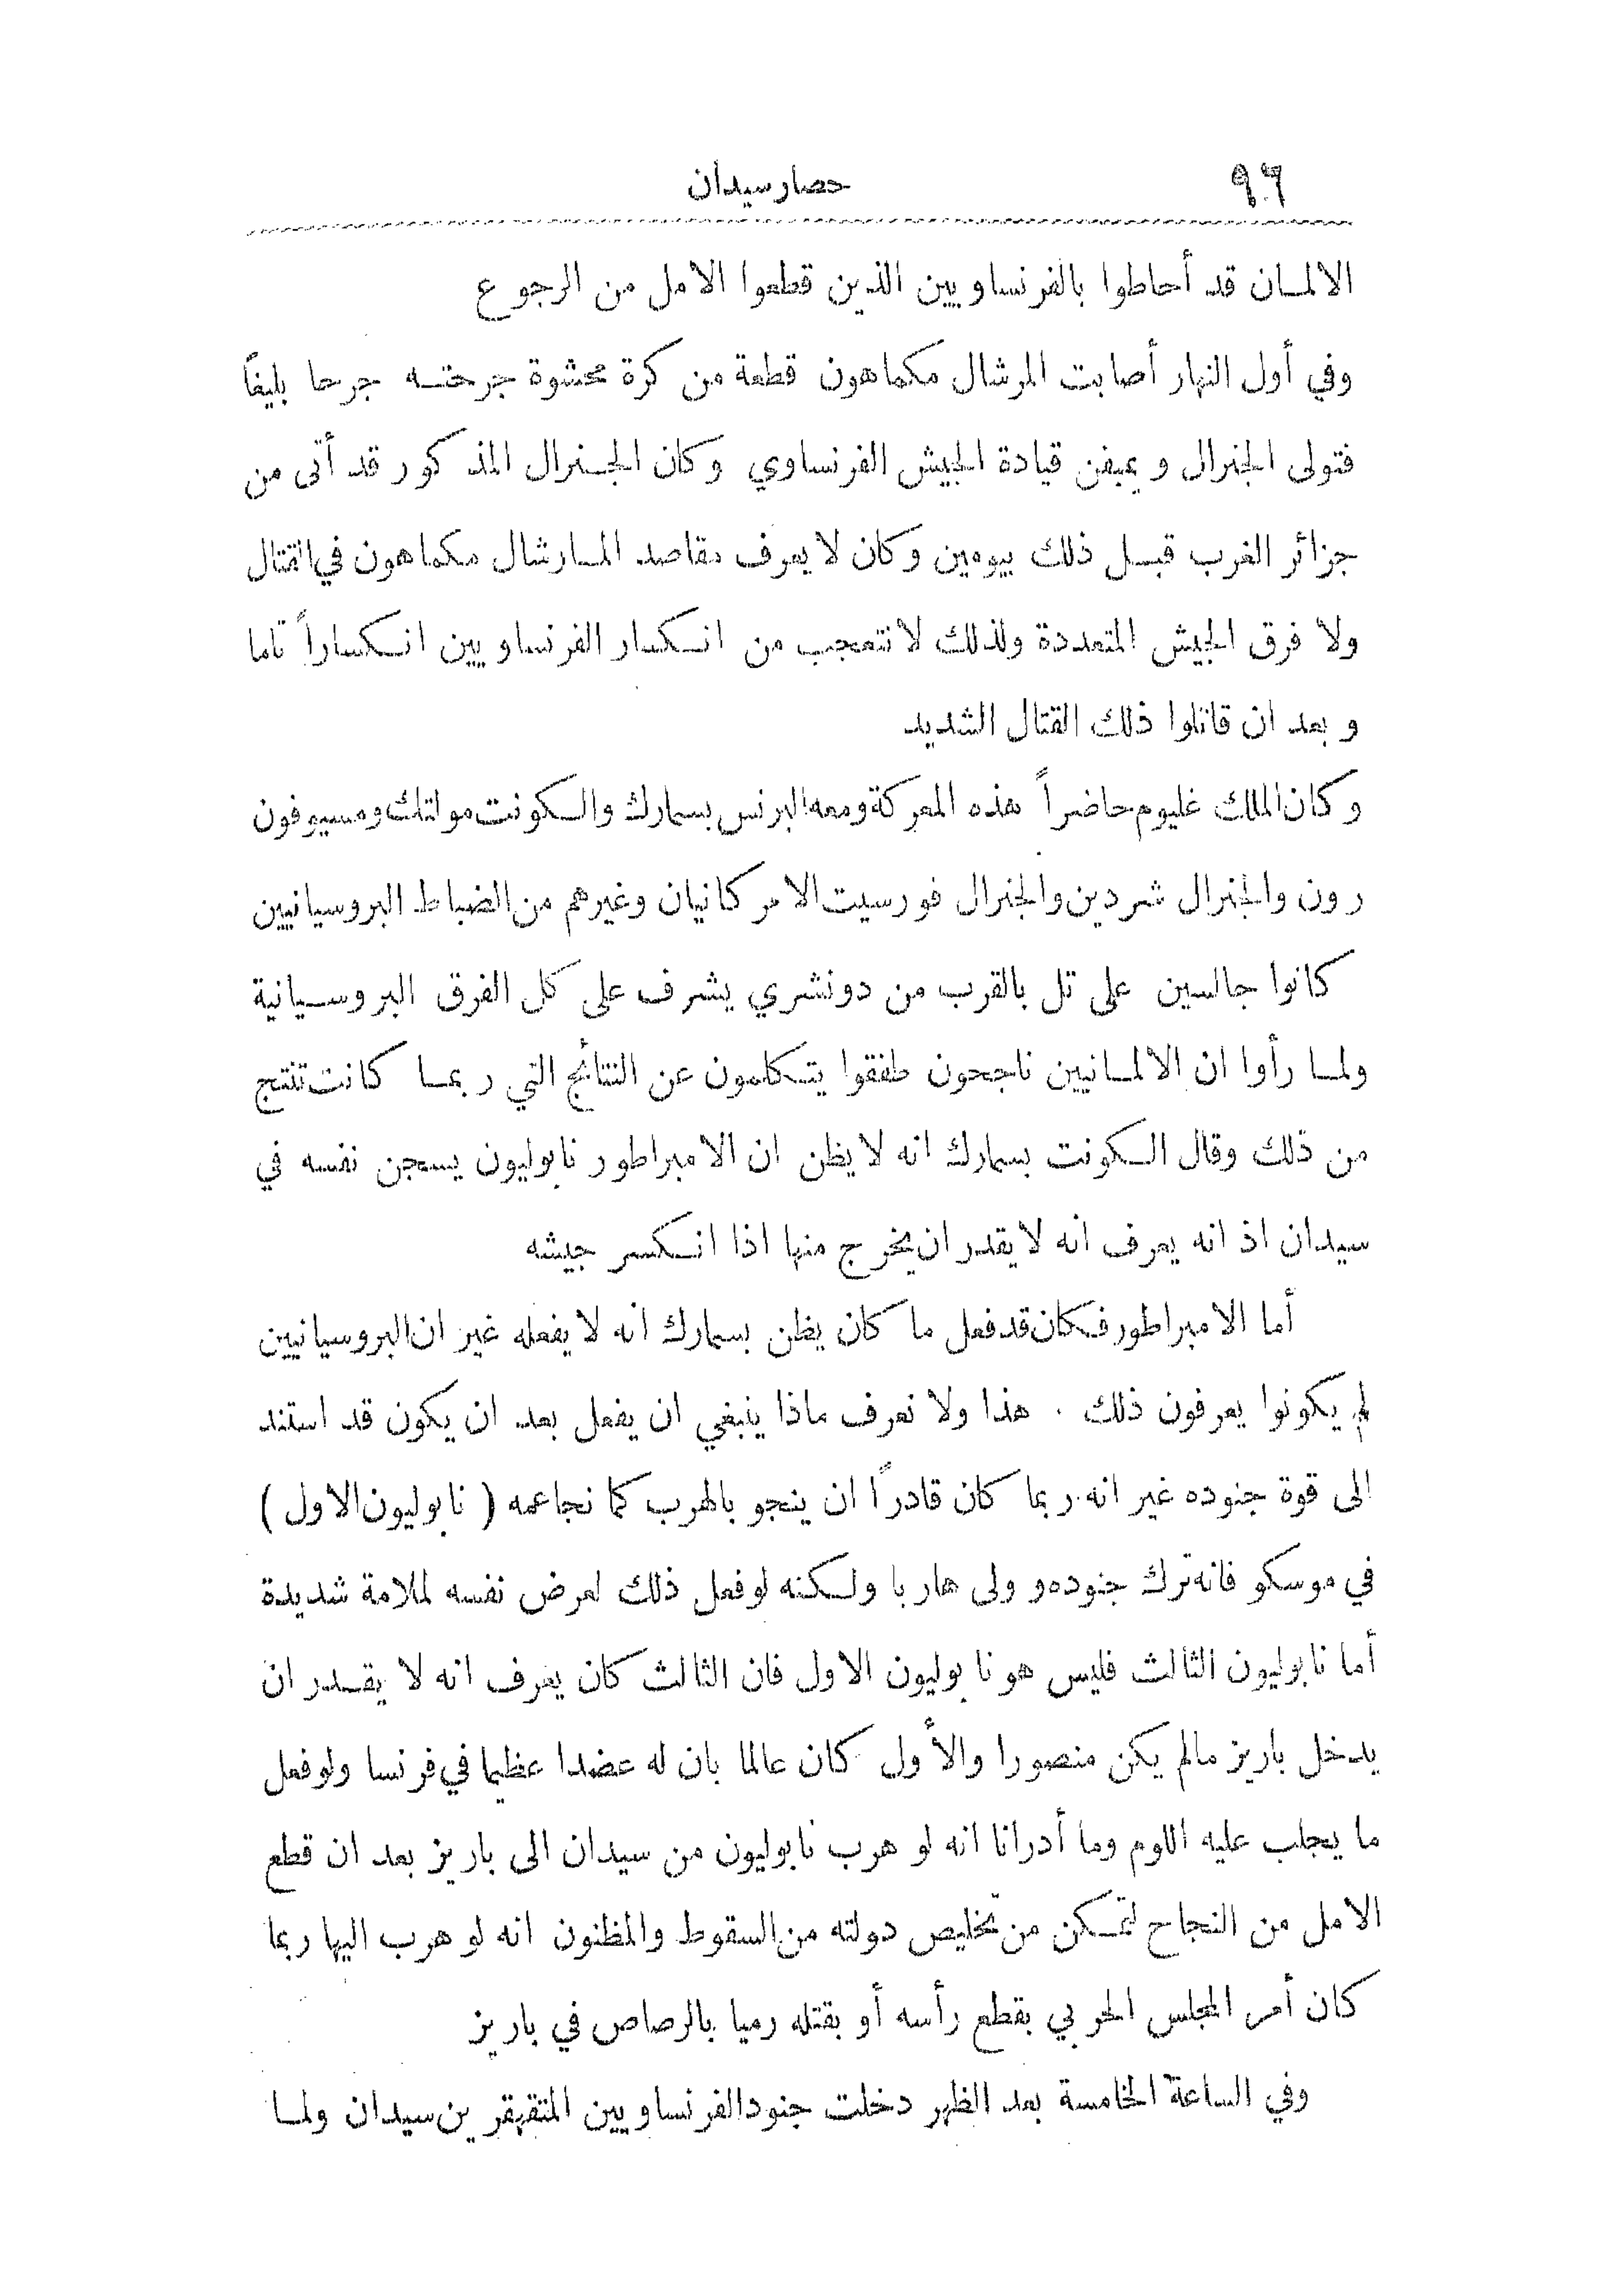 ٩٦ حصار سيدان
الالمان قد أحاطوا بالفرنساويين الذين قطعوا الامل من الرجوع
وفي أول النهار أصابت المرشال مكماهون قطعة من كرة محشوة جرحته جرحا بليغاً
فتولى الجنرال ويمبفن قيادة الجيش الفرنساوي وكان الجنرال المذكور قد أتى من
جزائر الغرب قبل ذلك بيومين وكان لا يعرف مقاصد المارشال مكماهون في القتال
ولا فرق الجيش المتعددة ولذلك لا نتعجب من انكسار الفرنساويين انكساراً تاما
وبعد ان قاتلوا ذلك القتال الشديد
وكان الملك غليوم حاضراً هذه المعركة ومعه البرنس بسمارك والكونت مولتك ومسيو فون
رون والجنرال شردين والجنرال فورسيت الامركانيان وغيرهم من الضباط البروسيانيين
كانوا جالسين على تل بالقرب من دونشري يشرف على كل الفرق البروسيانية
ولما رأوا ان الالمانيين ناجحون طفقوا يتكلمون عن النتائج التي ربما كانت تنتج
من ذلك وقال الكونت بسمارك انه لا يظن ان الامبراطور نابوليون يسجن نفسه في
سيدان اذ انه يعرف انه لا يقدر ان يخرج منها اذا انكسر جيشه
أما الامبراطور فكان قد فعل ما كان يظن بسمارك انه لا يفعله غير ان البروسيانيين
لم يكونوا يعرفون ذلك . هذا ولا نعرف ماذا ينبغي ان يفعل بعد ان يكون قد استند
الى قوة جنوده غير انه ربما كان قادراً ان ينجو بالهرب كما نجا عمه ( نابوليون الاول )
في موسكو فانه ترك جنوده و ولى هاربا ولكنه لو فعل ذلك لعرض نفسه لملامة شديدة
أما نابوليون الثالث فليس هو نابوليون الاول فان الثالث كان يعرف انه لا يقدر ان
يدخل باريز مالم يكن منصورا والأول كان عالما بان له عضدا عظيما في فرنسا ولو فعل
ما يجلب عليه اللوم وما أدرانا انه لو هرب نابوليون من سيدان الى باريز بعد ان قطع
الامل من النجاح لتمكن من تخليص دولته من السقوط والمظنون انه لو هرب اليها ربما
كان أمر المجلس الحربي بقطع رأسه أو بقتله رميا بالرصاص في باريز
وفي الساعة الخامسة بعد الظهر دخلت جنود الفرنساويين المتقهقرين سيدان ولما